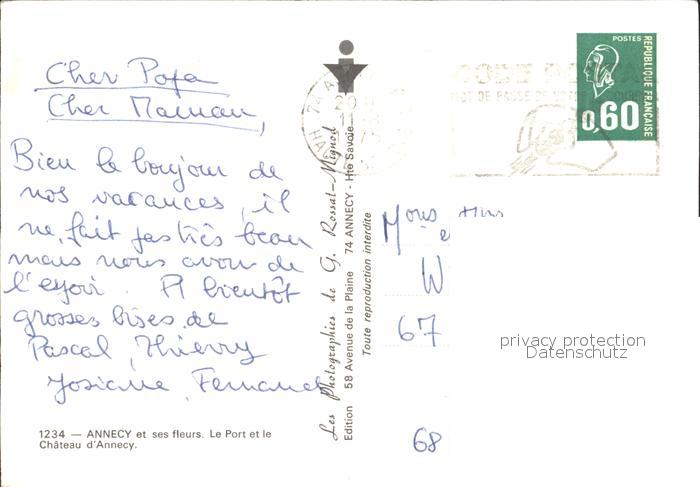 Cher Papa
Cher Maman,
Bien le bonjour de
nos vacances, il
ne fait pas très beau
mais nous avons de
l'espoir. A bientôt
grosses bises de
Pascal, Thierry
Josiane, Fernand
1234 — ANNECY et ses fleurs. Le Port et le
Château d'Annecy.
Les Photographies de G. Rossat-Mignod
Edition 58 Avenue de la Plaine 74 ANNECY - Hte Savoie
Toute reproduction interdite
POSTES
REPUBLIQUE FRANÇAISE
0,60
CODE POSTAL
MOT DE PASSE DE VOTRE
W
67
68
privacy protection
Datenschutz